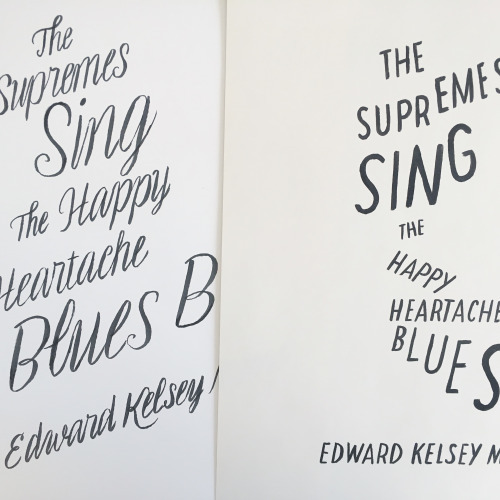 The
Supremes
Sing
The Happy
Heartache
Blues B
Edward Kelsey
THE
SUPREMES
SING
THE
HAPPY
HEARTACHE
BLUES
EDWARD KELSEY M